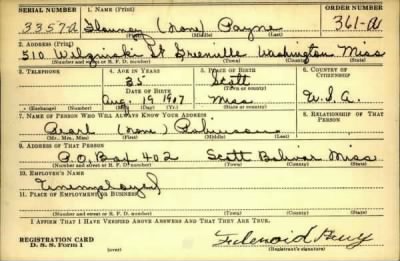 SERIAL NUMBER 1. NAME (Print) ORDER NUMBER
3357A (None) Payne 361-A
(First) (Middle) (Last)
2. ADDRESS (Print)
510 St Greenville Washington Miss
(Number and street or R. F. D. number) (Town) (County) (State)
3. TELEPHONE 4. AGE IN YEARS 5. PLACE OF BIRTH 6. COUNTRY OF CITIZENSHIP
Scott
DATE OF BIRTH (Town or county)
Aug. 19 1907 Miss U.S.A.
(Exchange) (Number) (Mo.) (Day) (Yr.) (State or country)
7. NAME OF PERSON WHO WILL ALWAYS KNOW YOUR ADDRESS 8. RELATIONSHIP OF THAT PERSON
Pearl (None) Robinson
(Mr., Mrs., Miss) (First) (Middle) (Last)
9. ADDRESS OF THAT PERSON
P.O. Box 402 Scott Bolivar Miss
(Number and street or R. F. D. number) (Town) (County) (State)
10. EMPLOYER'S NAME
Unemployed
11. PLACE OF EMPLOYMENT OR BUSINESS
(Number and street or R. F. D. number) (Town) (County) (State)
I AFFIRM THAT I HAVE VERIFIED ABOVE ANSWERS AND THAT THEY ARE TRUE.
REGISTRATION CARD
D. S. S. Form 1 (over) (Registrant's signature)